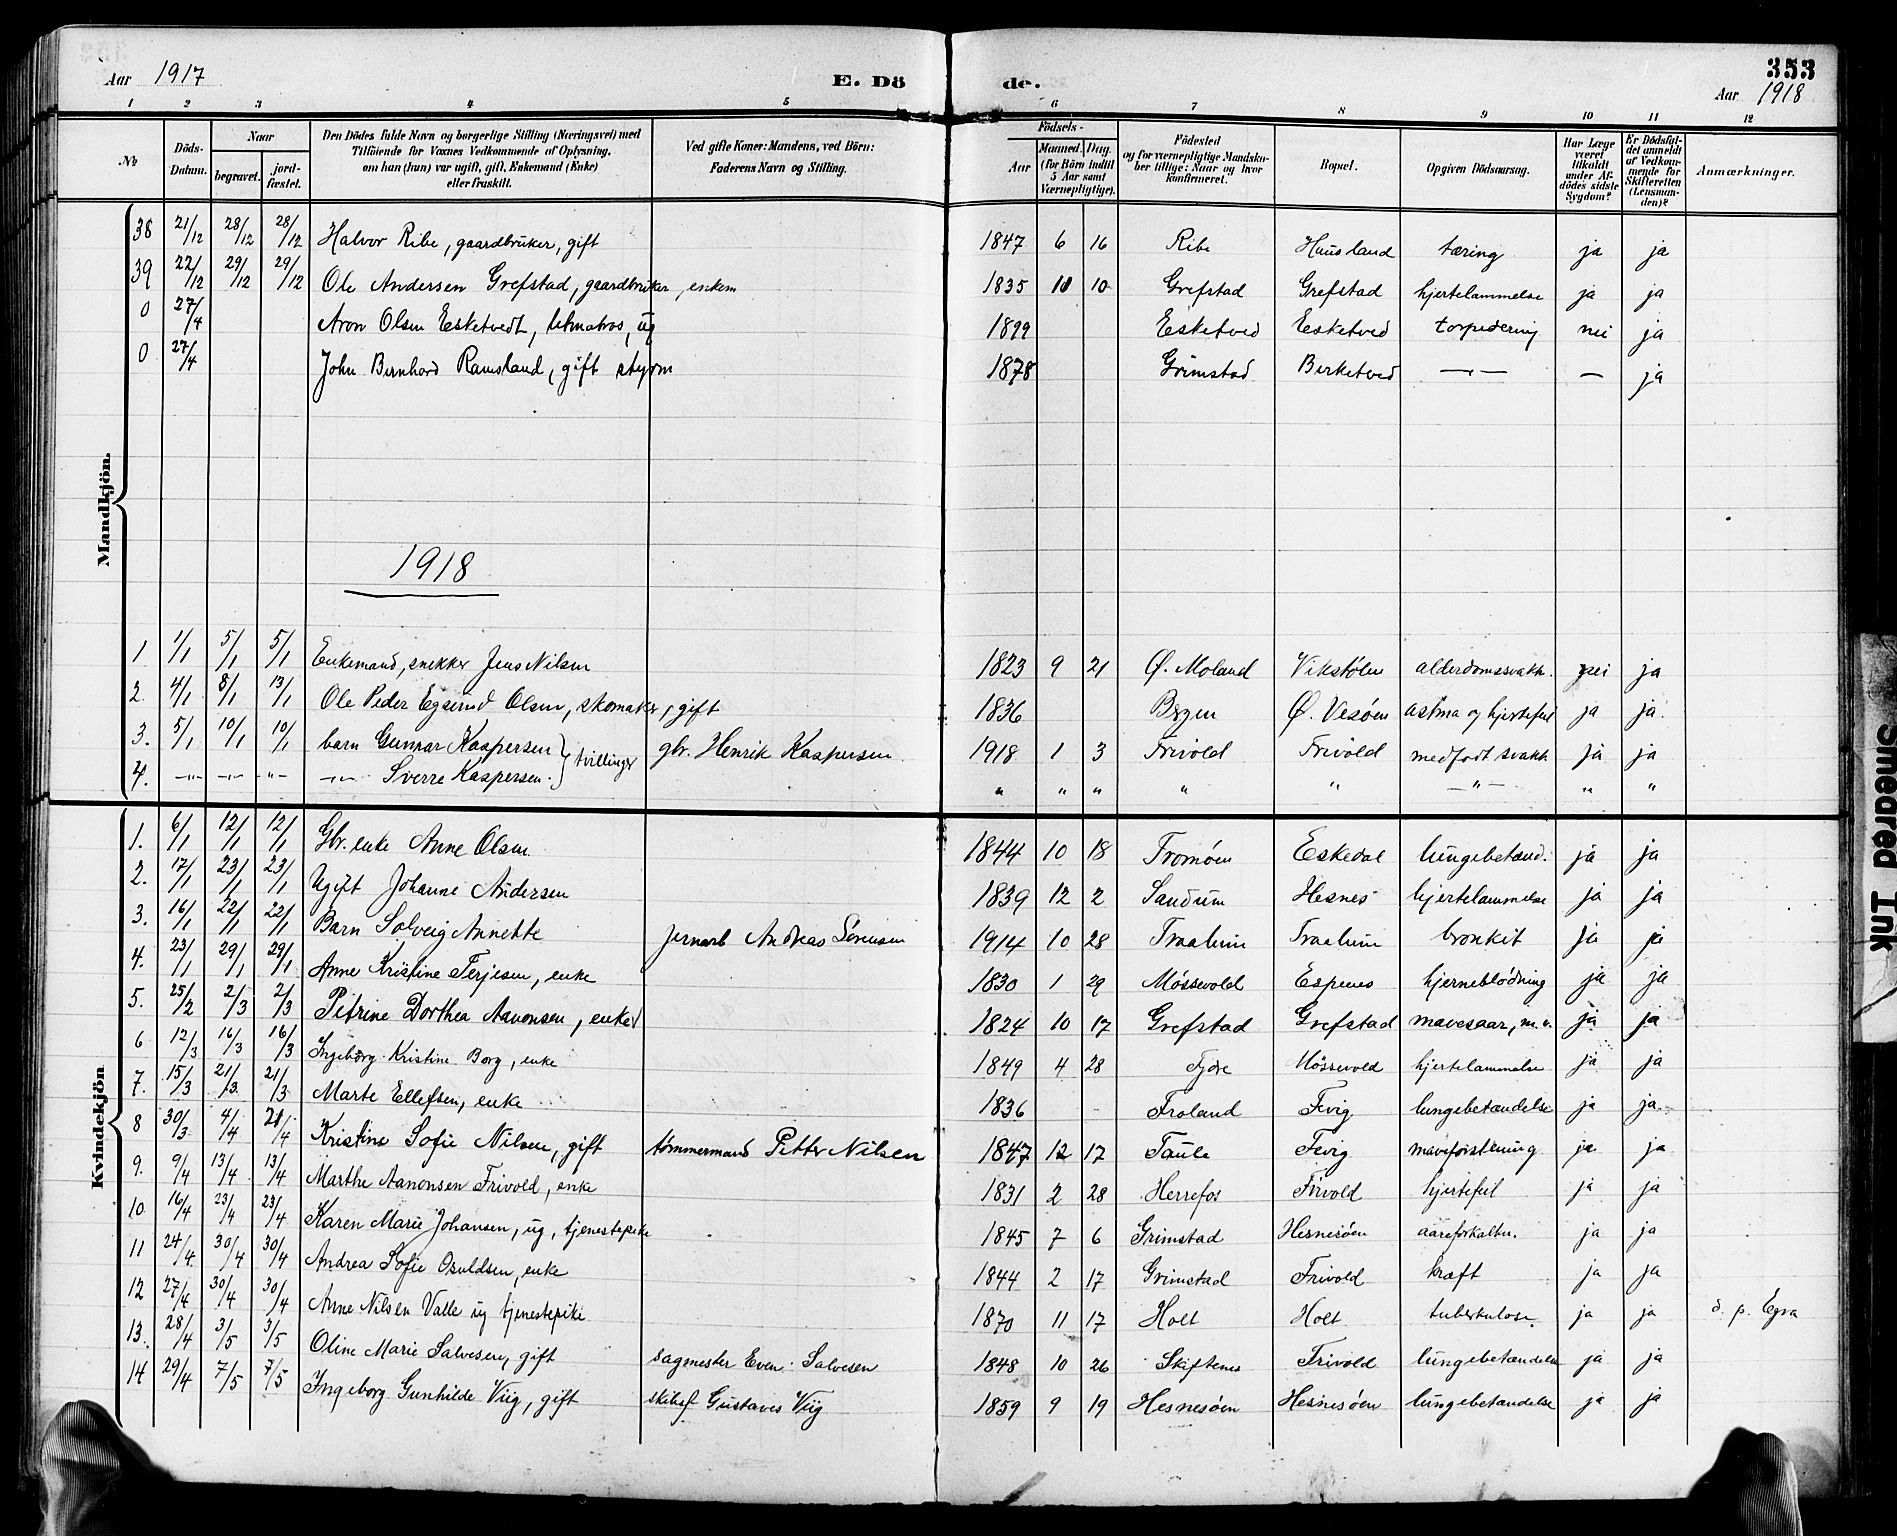 353
Aar 1917 E. Dö de. Aar 1918
1 2 3 4 5 6 7 8 9 10 11 12
No Döds-Datum. Naar begravet. jord-fæstet. Den Dödes fulde Navn og borgerlige Stilling (Næringsvei) med Tilföiende for Voxnes Vedkommende af Oplysning, om han (hun) var ugift, gift, Enkemand (Enke) eller fraskilt. Ved gifte Koner: Mandens, ved Börn: Faderens Navn og Stilling. Födsels- Aar Maaned. Dag. (for Börn indtil 5 Aar samt Værnepligtige). Födested og for værnepligtige Mandskaber tillige: Naar og hvor konfirmeret. Bopæl. Opgiven Dödsaarsag. Har Læge været tilkaldt under Afdödes sidste Sygdom? Er Dödsfaldet anmeldt af Vedkommende for Skifteretten (Lensmanden)? Anmærkninger.
Mandkjön.
38 21/12 28/12 28/12 Halvor Ribe, gaardbruker, gift 1847 6 16 Ribe Huusland tæring ja ja
39 22/12 29/12 29/12 Ole Andersen Grefstad, gaardbruker, enkem 1835 11 10 Grefstad Grefstad hjertelammelse ja ja
0 27/4 Aron Olsen Esketvedt, letmatros, ug 1899 Esketved Esketved torpedering nei ja
0 27/4 John Bernhard Ramsland, gift styrm 1878 Grimstad Birketved —„— — ja
1918
1 1/1 5/1 5/1 Enkemand, snekker Jens Nilsen 1823 9 21 Ø. Moland Vikstølen alderdomssvakh. nei ja
2. 4/1 8/1 13/1 Ole Peder Egserud Olsen, skomaker, gift 1836 Bergen Ø. Vesøen astma og hjertefeil ja ja.
3. 5/1 10/1 10/1 barn Gunnar Kaspersen } tvillinger gbr. Henrik Kaspersen 1918 1 3 Frivold Frivold medfødt svakh ja ja
4. —„— —„— „— —„— Sverre Kaspersen. „ „ „ „ „ —„— „ „
Kvindekjön
1. 6/1 12/1 12/1 Gbr. enke Anne Olsen 1844 10 18 Tromøen Eskedal lungebetænd. ja ja
2. 17/1 23/1 23/1 Ugift Johanne Andersen 1839 12 2 Sandum Hesnes hjertelammelse ja ja
3. 16/1 22/1 22/1 Barn Solveig Annette jernarb Andreas Sørensen 1914 10 28 Traalum Traalum bronkit ja ja
4. 23/1 29/1 29/1 Anne Kristine Terjesen, enke 1830 1 29 Møssevold Espenes hjerneblödning ja ja
5. 25/2 2/3 2/3 Petrine Dorthea Aanonsen, enke 1824 10 17 Grefstad Grefstad mavesaar, m.v. ja ja
6 12/3 16/3 16/3 Ingeborg Kristine Borg, enke 1849 4 28 Fjære Møssevold hjertelammelse ja ja
7. 15/3 21/3 21/3 Marte Ellefsen, enke 1836 Froland Fevig lungebetændelse ja ja
8 30/3 4/4 21/4 Kristine Sofie Nilsen, gift tømmermand Petter Nilsen 1847 12 17 Fevig ja ja
9. 9/4 13/4 13/4 Marthe Aanonsen Frivold, enke 1831 2 28 Herrefos Frivold hjertefeil ja ja
10 16/4 23/4 23/4 Karen Marie Johansen, ug, tjenestepike 1845 7 6 Grimstad Hesnesøen aareforkalkn. ja ja
11 24/4 30/4 30/4 Andrea Sofie Osuldsen, enke 1844 2 17 Grimstad Frivold kræft ja ja
12 27/4 30/4 30/4 Anne Nilsen Valle ug tjenestepike 1870 11 17 Holt Holt tuberkulose. ja ja d. p. Egra
13. 28/4 3/5 3/5 Oline Marie Salvesen, gift sagmester Even Salvesen 1848 10 26 Skiftenes Frivold lungebetændelse ja ja
14 29/4 7/5 7/5 Ingeborg Gunhilde Viig, gift skibsf Gustaves Viig 1859 9 19 Hesnesøen Hesnesøen lungebetændelse ja ja
Smeared Ink